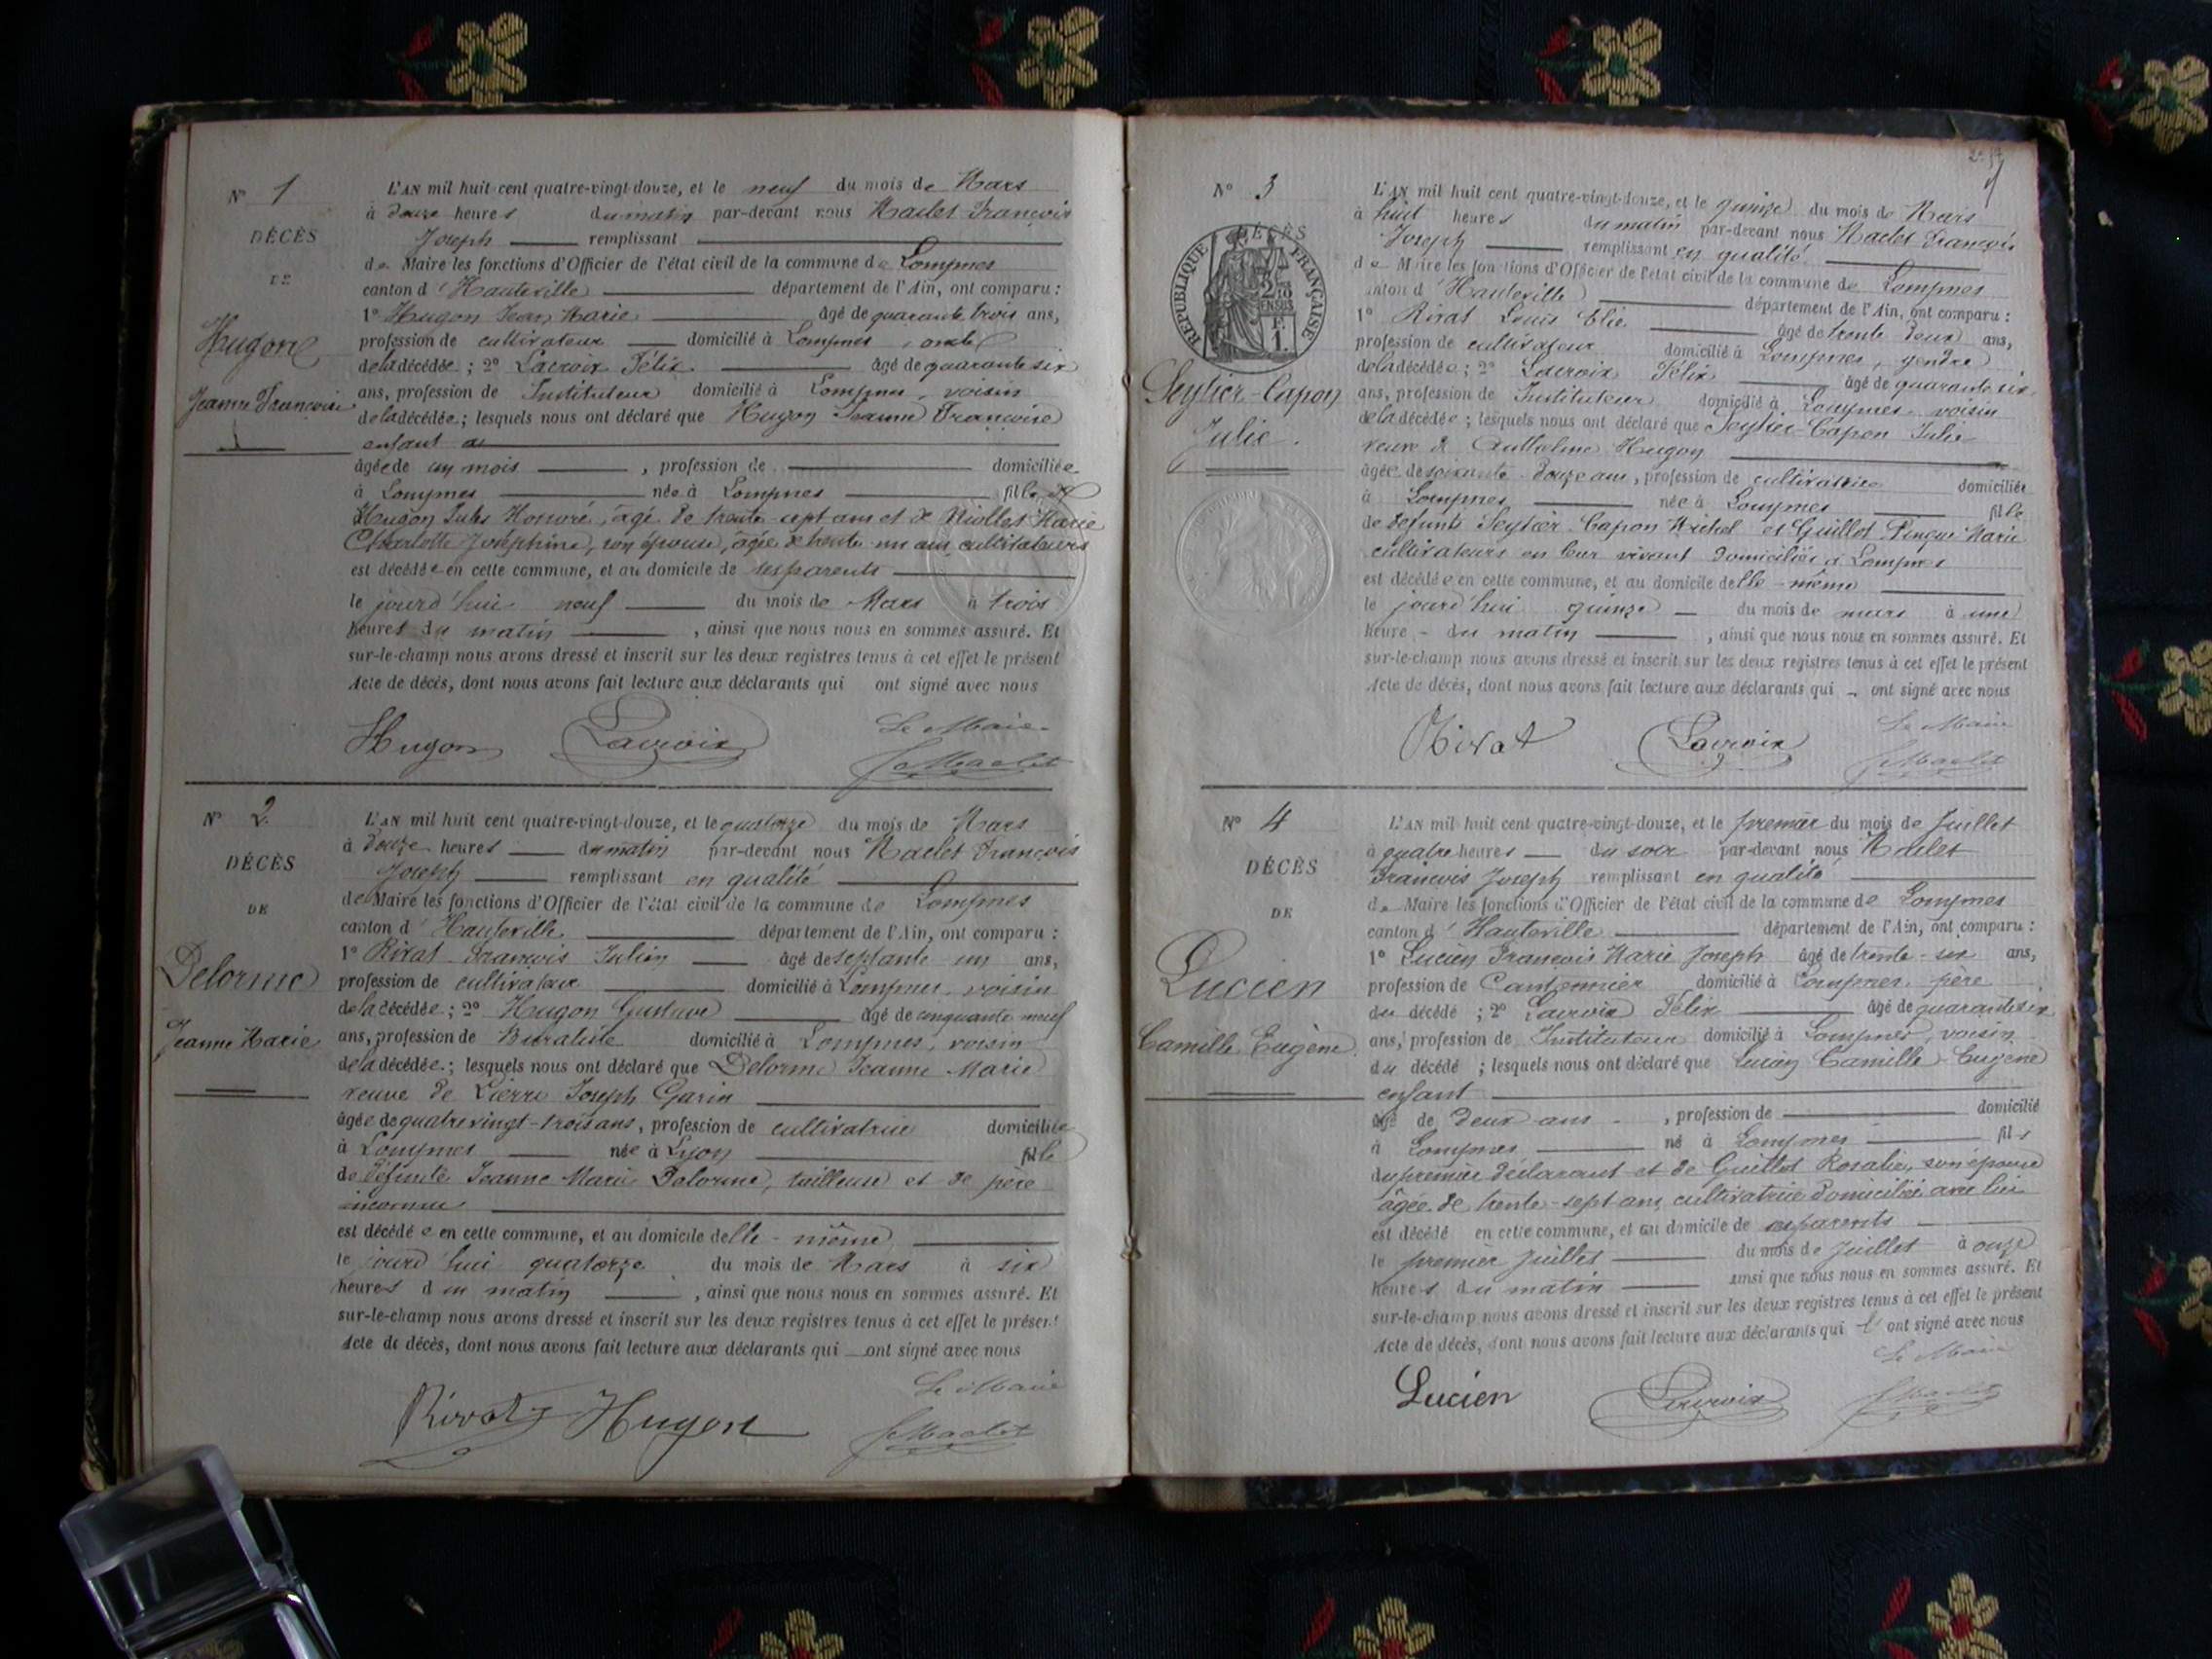 N° 1
DÉCÈS
DE
Hugon
Jeanne Françoise
L'AN mil huit cent quatre-vingt-douze, et le neuf du mois de Mars
à douze heures du matin par-devant nous Maclet François
Joseph remplissant
de Maire les fonctions d'Officier de l'état civil de la commune de Lompnes
canton d'Hauteville département de l'Ain, ont comparu :
1° Hugon Jean Marie âgé de quarante trois ans,
profession de cultivateur domicilié à Lompnes, oncle
de la décédée ; 2° Lacroix Félix âgé de quarante six
ans, profession de Instituteur domicilié à Lompnes, voisin
de la décédée ; lesquels nous ont déclaré que Hugon Jeanne Françoise
enfant
âgée de un mois , profession de domiciliée
à Lompnes née à Lompnes fille de
Hugon Jules Honoré, âgé de trente-sept ans et de Niollet Marie
Charlotte Joséphine, son épouse, âgée de trente-un ans, cultivateurs
est décédée en cette commune, et au domicile de ses parents
le jourd'hui neuf du mois de Mars à trois
heures du matin , ainsi que nous nous en sommes assuré. Et
sur-le-champ nous avons dressé et inscrit sur les deux registres tenus à cet effet le présent
Acte de décès, dont nous avons fait lecture aux déclarants qui ont signé avec nous
Le Maire
Hugon Lacroix Maclet
N° 2
DÉCÈS
DE
Delorme
Jeanne Marie
L'AN mil huit cent quatre-vingt-douze, et le quatorze du mois de Mars
à douze heures du matin par-devant nous Maclet François
Joseph remplissant en qualité
de Maire les fonctions d'Officier de l'état civil de la commune de Lompnes
canton d'Hauteville département de l'Ain, ont comparu :
1° Rivat François Julien âgé de septante un ans,
profession de cultivateur domicilié à Lompnes, voisin
de la décédée ; 2° Hugon Gustave âgé de cinquante neuf
ans, profession de Buraliste domicilié à Lompnes, voisin
de la décédée ; lesquels nous ont déclaré que Delorme Jeanne Marie
veuve de Pierre Joseph Garin
âgée de quatre vingt-trois ans, profession de cultivatrice domiciliée
à Lompnes née à Lyon fille
de défunte Jeanne Marie Delorme, tailleuse et de père
inconnu
est décédée en cette commune, et au domicile d'elle-même
le jourd'hui quatorze du mois de Mars à six
heures du matin , ainsi que nous nous en sommes assuré. Et
sur-le-champ nous avons dressé et inscrit sur les deux registres tenus à cet effet le présent
Acte de décès, dont nous avons fait lecture aux déclarants qui ont signé avec nous
Le Maire
Rivat Hugon Maclet
N° 3
DÉCÈS
RÉPUBLIQUE FRANÇAISE
Seytier-Capon
Julie.
L'AN mil huit cent quatre-vingt-douze, et le quinze du mois de Mars
à huit heures du matin par-devant nous Maclet François
Joseph remplissant en qualité
de Maire les fonctions d'Officier de l'état civil de la commune de Lompnes
canton d'Hauteville département de l'Ain, ont comparu :
1° Rivat Louis Elie âgé de trente deux ans,
profession de cultivateur domicilié à Lompnes, gendre
de la décédée ; 2° Lacroix Félix âgé de quarante six
ans, profession de Instituteur domicilié à Lompnes, voisin
de la décédée ; lesquels nous ont déclaré que Seytier-Capon Julie
veuve de Anthelme Hugon
âgée de soixante-douze ans, profession de cultivatrice domiciliée
à Lompnes née à Lompnes fille
de défunts Seytier-Capon Michel et Guillot Pinque Marie
cultivateurs en leur vivant domiciliés à Lompnes
est décédée en cette commune, et au domicile d'elle-même
le jourd'hui quinze du mois de mars à une
heure du matin , ainsi que nous nous en sommes assuré. Et
sur-le-champ nous avons dressé et inscrit sur les deux registres tenus à cet effet le présent
Acte de décès, dont nous avons fait lecture aux déclarants qui ont signé avec nous
Le Maire
Rivat Lacroix Maclet
N° 4
DÉCÈS
DE
Lucien
Camille Eugène
L'AN mil huit cent quatre-vingt-douze, et le premier du mois de Juillet
à quatre heures du soir par-devant nous Maclet
François Joseph remplissant en qualité
de Maire les fonctions d'Officier de l'état civil de la commune de Lompnes
canton d'Hauteville département de l'Ain, ont comparu :
1° Lucien François Marie Joseph âgé de trente-six ans,
profession de Cantonnier domicilié à Lompnes, père
du décédé ; 2° Lacroix Félix âgé de quarante six
ans, profession de Instituteur domicilié à Lompnes, voisin
du décédé ; lesquels nous ont déclaré que Lucien Camille Eugène
enfant
âgé de deux ans , profession de domicilié
à Lompnes né à Lompnes fils
du premier déclarant et de Guillot Rosalie, son épouse
âgée de trente-sept ans, cultivatrice domiciliée avec lui
est décédé en cette commune, et au domicile de ses parents
le premier Juillet du mois de Juillet à onze
heures du matin ainsi que nous nous en sommes assuré. Et
sur-le-champ nous avons dressé et inscrit sur les deux registres tenus à cet effet le présent
Acte de décès, dont nous avons fait lecture aux déclarants qui ont signé avec nous
Le Maire
Lucien Lacroix Maclet